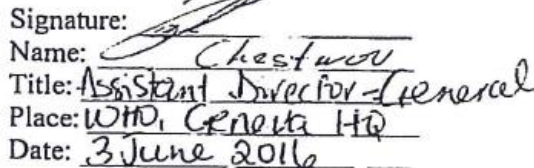 Signature:
Name: Chestnov
Title: Assistant Director-General
Place: WHO, Geneva HQ
Date: 3 June 2016